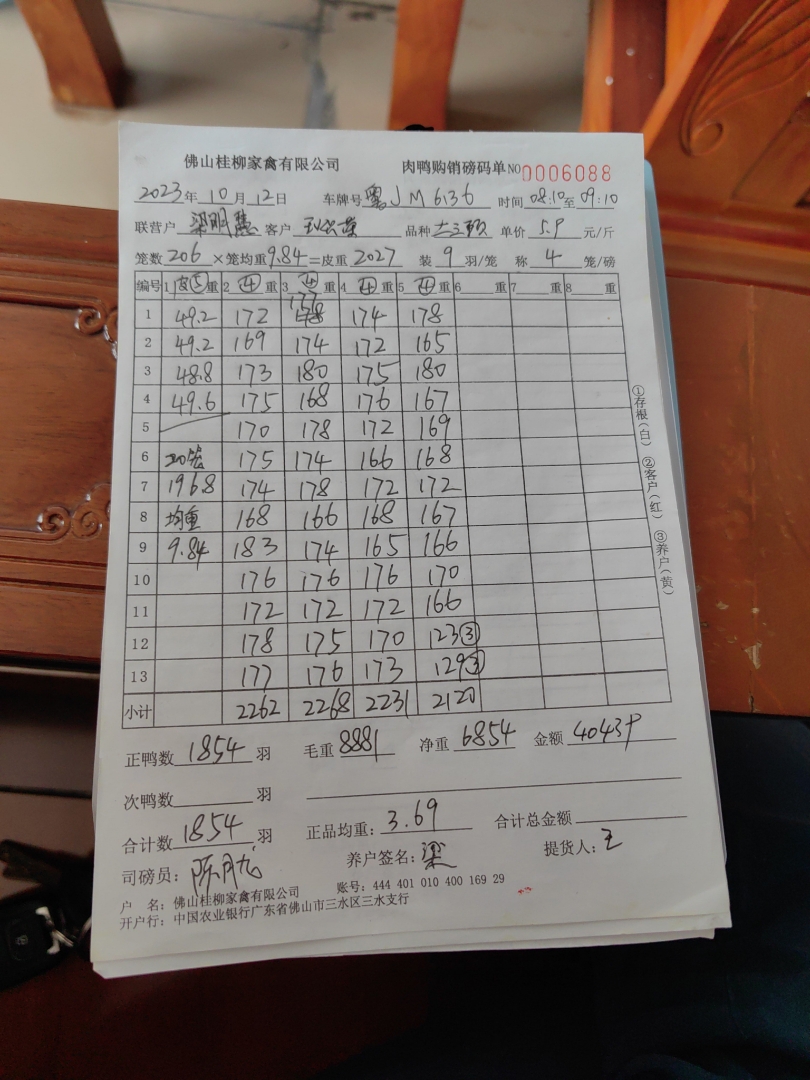 佛山桂柳家禽有限公司 肉鸭购销磅码单 NO 0006088
2023年10月12日 车牌号 粤JM6136 时间 08:10至09:10
联营户 梁明 客户 品种 单价 5.9 元/斤
笼数 206 ×笼均重 9.84 =皮重 2027 装 9 羽/笼 称 4 笼/磅
编号 1 皮⑤重 2 ④重 3 ④重 4 ④重 5 ④重 6 重 7 重 8 重
1 49.2 172 177 174 178
2 49.2 169 174 172 165
3 48.8 173 180 175 180
4 49.6 175 168 176 167
5 170 178 172 169
6 20笼 175 174 166 168
7 196.8 174 178 172 172
8 均重 168 166 168 167
9 9.84 183 174 165 166
10 176 176 176 170
11 172 172 172 166
12 178 175 170 123③
13 177 176 173 129③
小计 2262 2268 2231 2120
正鸭数 1854 羽 毛重 8881 净重 6854 金额 40439
次鸭数 羽
合计数 1854 羽 正品均重: 3.69 合计总金额
司磅员: 陈 养户签名: 梁 提货人: 王
户 名: 佛山桂柳家禽有限公司 账号: 444 401 010 400 169 29
开户行: 中国农业银行广东省佛山市三水区三水支行
①存根(白) ②客户(红) ③养户(黄)